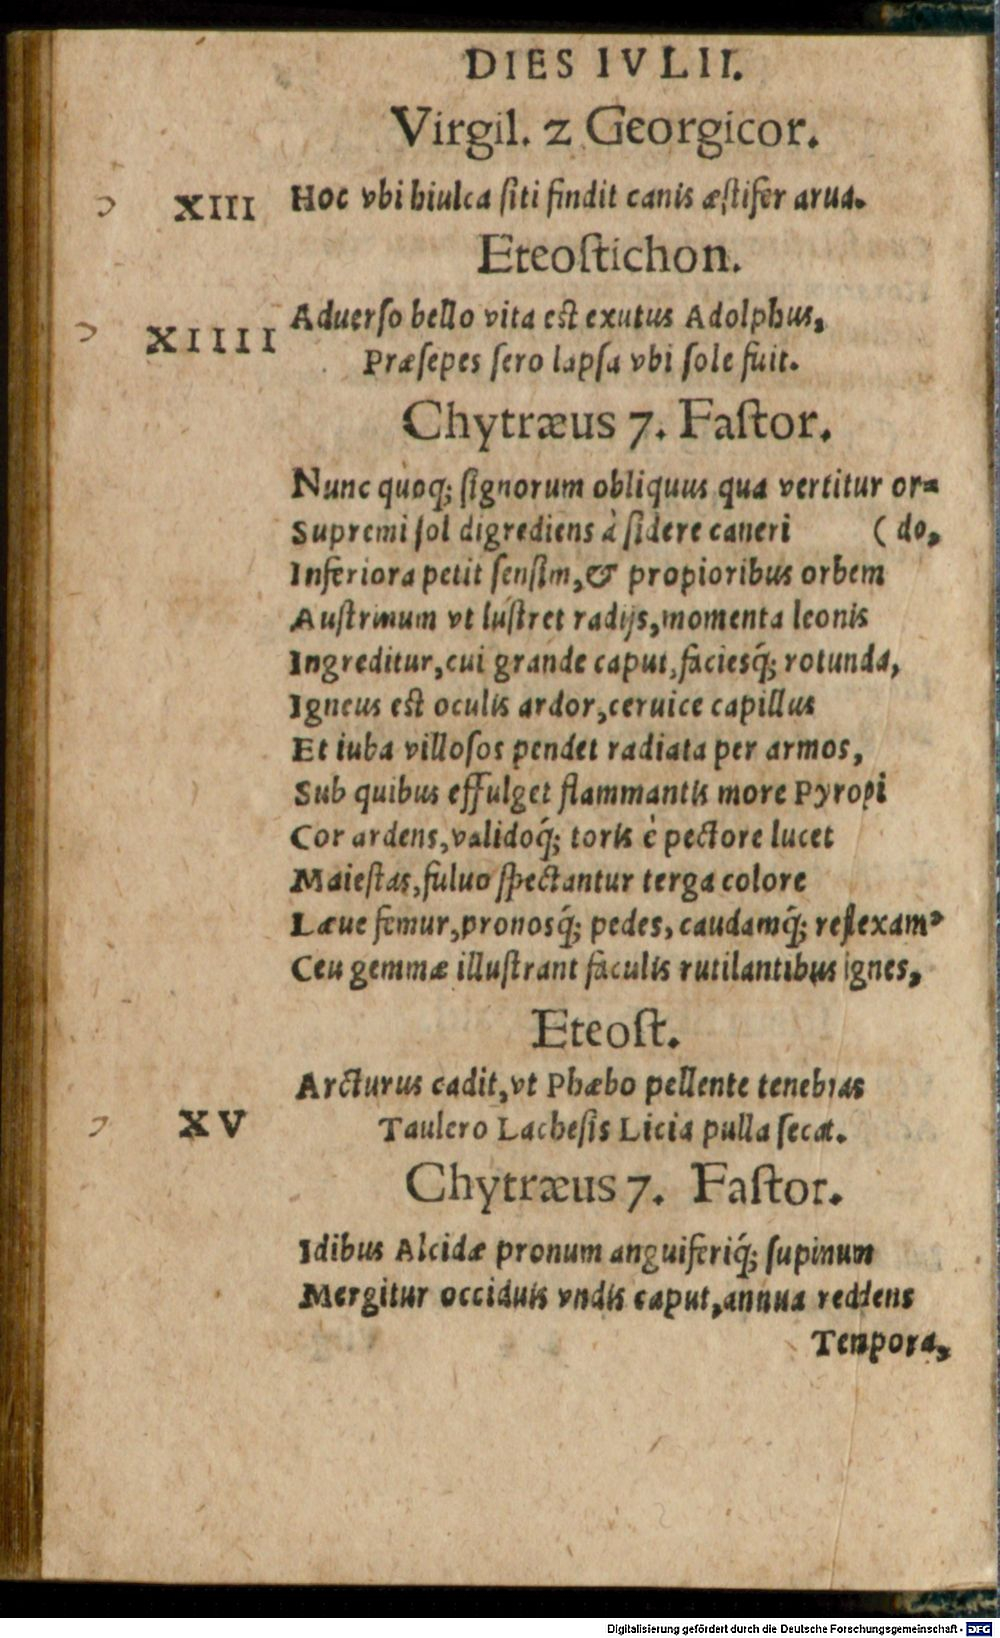 DIES IVLII.
Virgil. 2 Georgicor.
XIII Hoc vbi hiulca ſiti findit canis æſtifer arua.
Eteoſtichon.
Aduerſo bello vita est exutus Adolphus,
XIIII
Præſepes ſero lapſa vbi ſole fuit.
Chytræus 7. Faſtor.
Nunc quoq; ſignorum obliquus qua vertitur or=
Supremi ſol digrediens à ſidere caneri (do,
Inferiora petit ſenſim, & propioribus orbem
Auſtrinum vt luſtret radijs, momenta leonis
Ingreditur, cui grande caput, facieſq́; rotunda,
Igneus est oculis ardor, ceruice capillus
Et iuba villoſos pendet radiata per armos,
Sub quibus effulget flammantis more Pyropi
Cor ardens, validoq́; toris è pectore lucet
Maieſtas, fuluo ſpectantur terga colore
Læue femur, pronosq́; pedes, caudamq́; reflexam
Ceu gemmæ illuſtrant faculis rutilantibus ignes,
Eteoſt.
Arcturus cadit, vt Phæbo pellente tenebras
XV Taulero Lacheſis Licia pulla ſecat.
Chytræus 7. Faſtor.
Idibus Alcidæ pronum anguiferiq́; ſupinum
Mergitur occiduis vndis caput, annua reddens
Tempora,
Digitalisierung gefördert durch die Deutsche Forschungsgemeinschaft - DFG